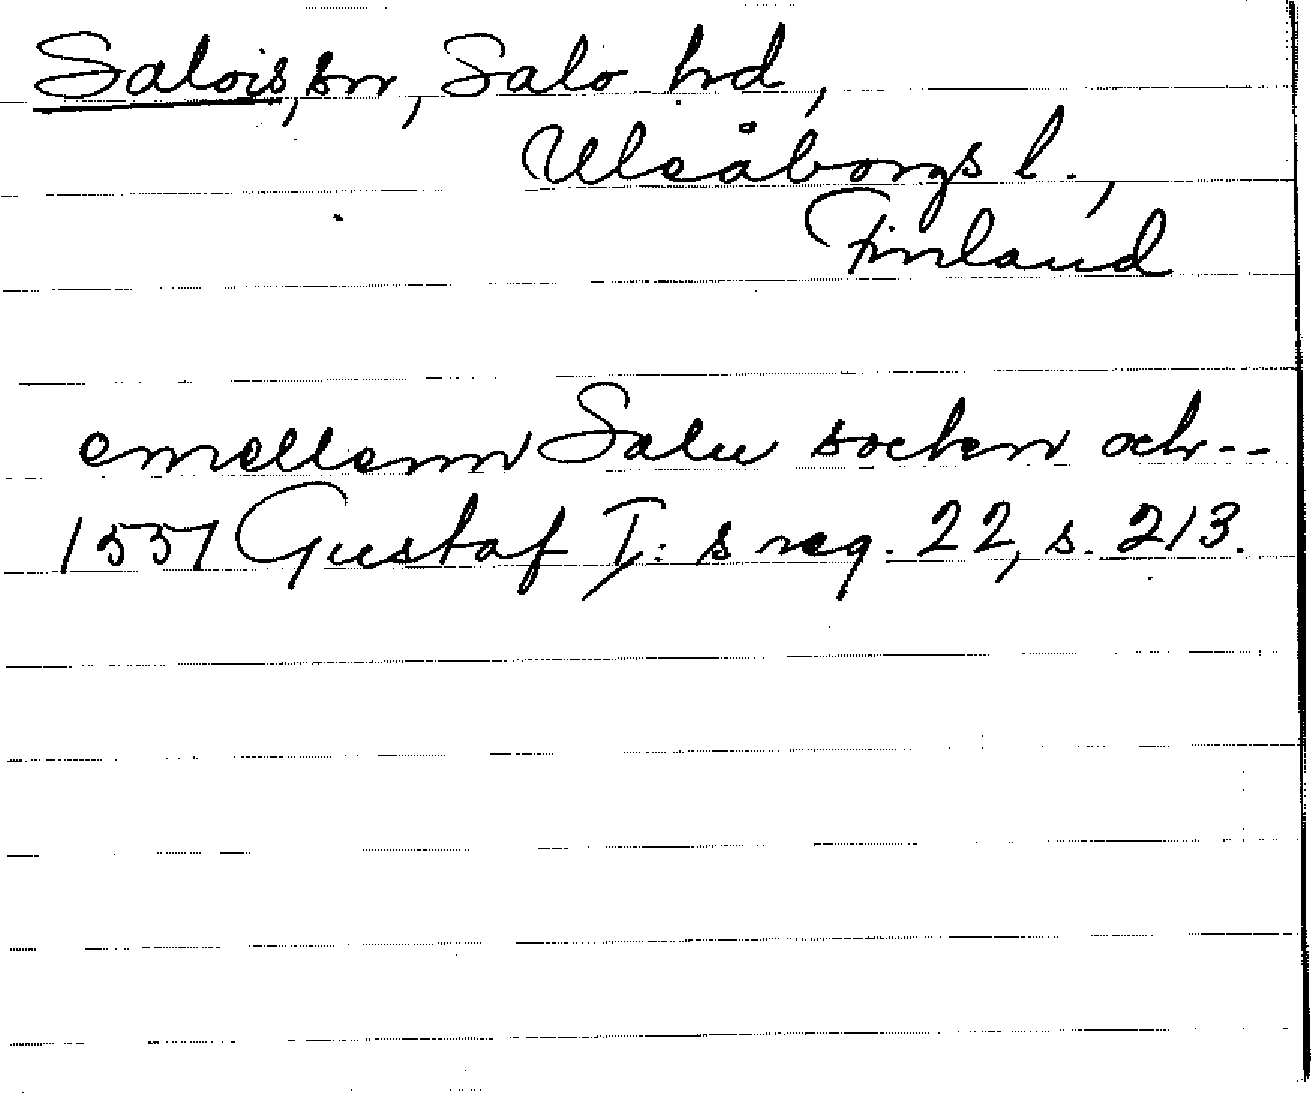 Salois, sn, Salo hrd,
Uleåborgs l.,
Finland
emellenn Salu socken och--
1551 Gustaf I: s reg. 22, s. 213.